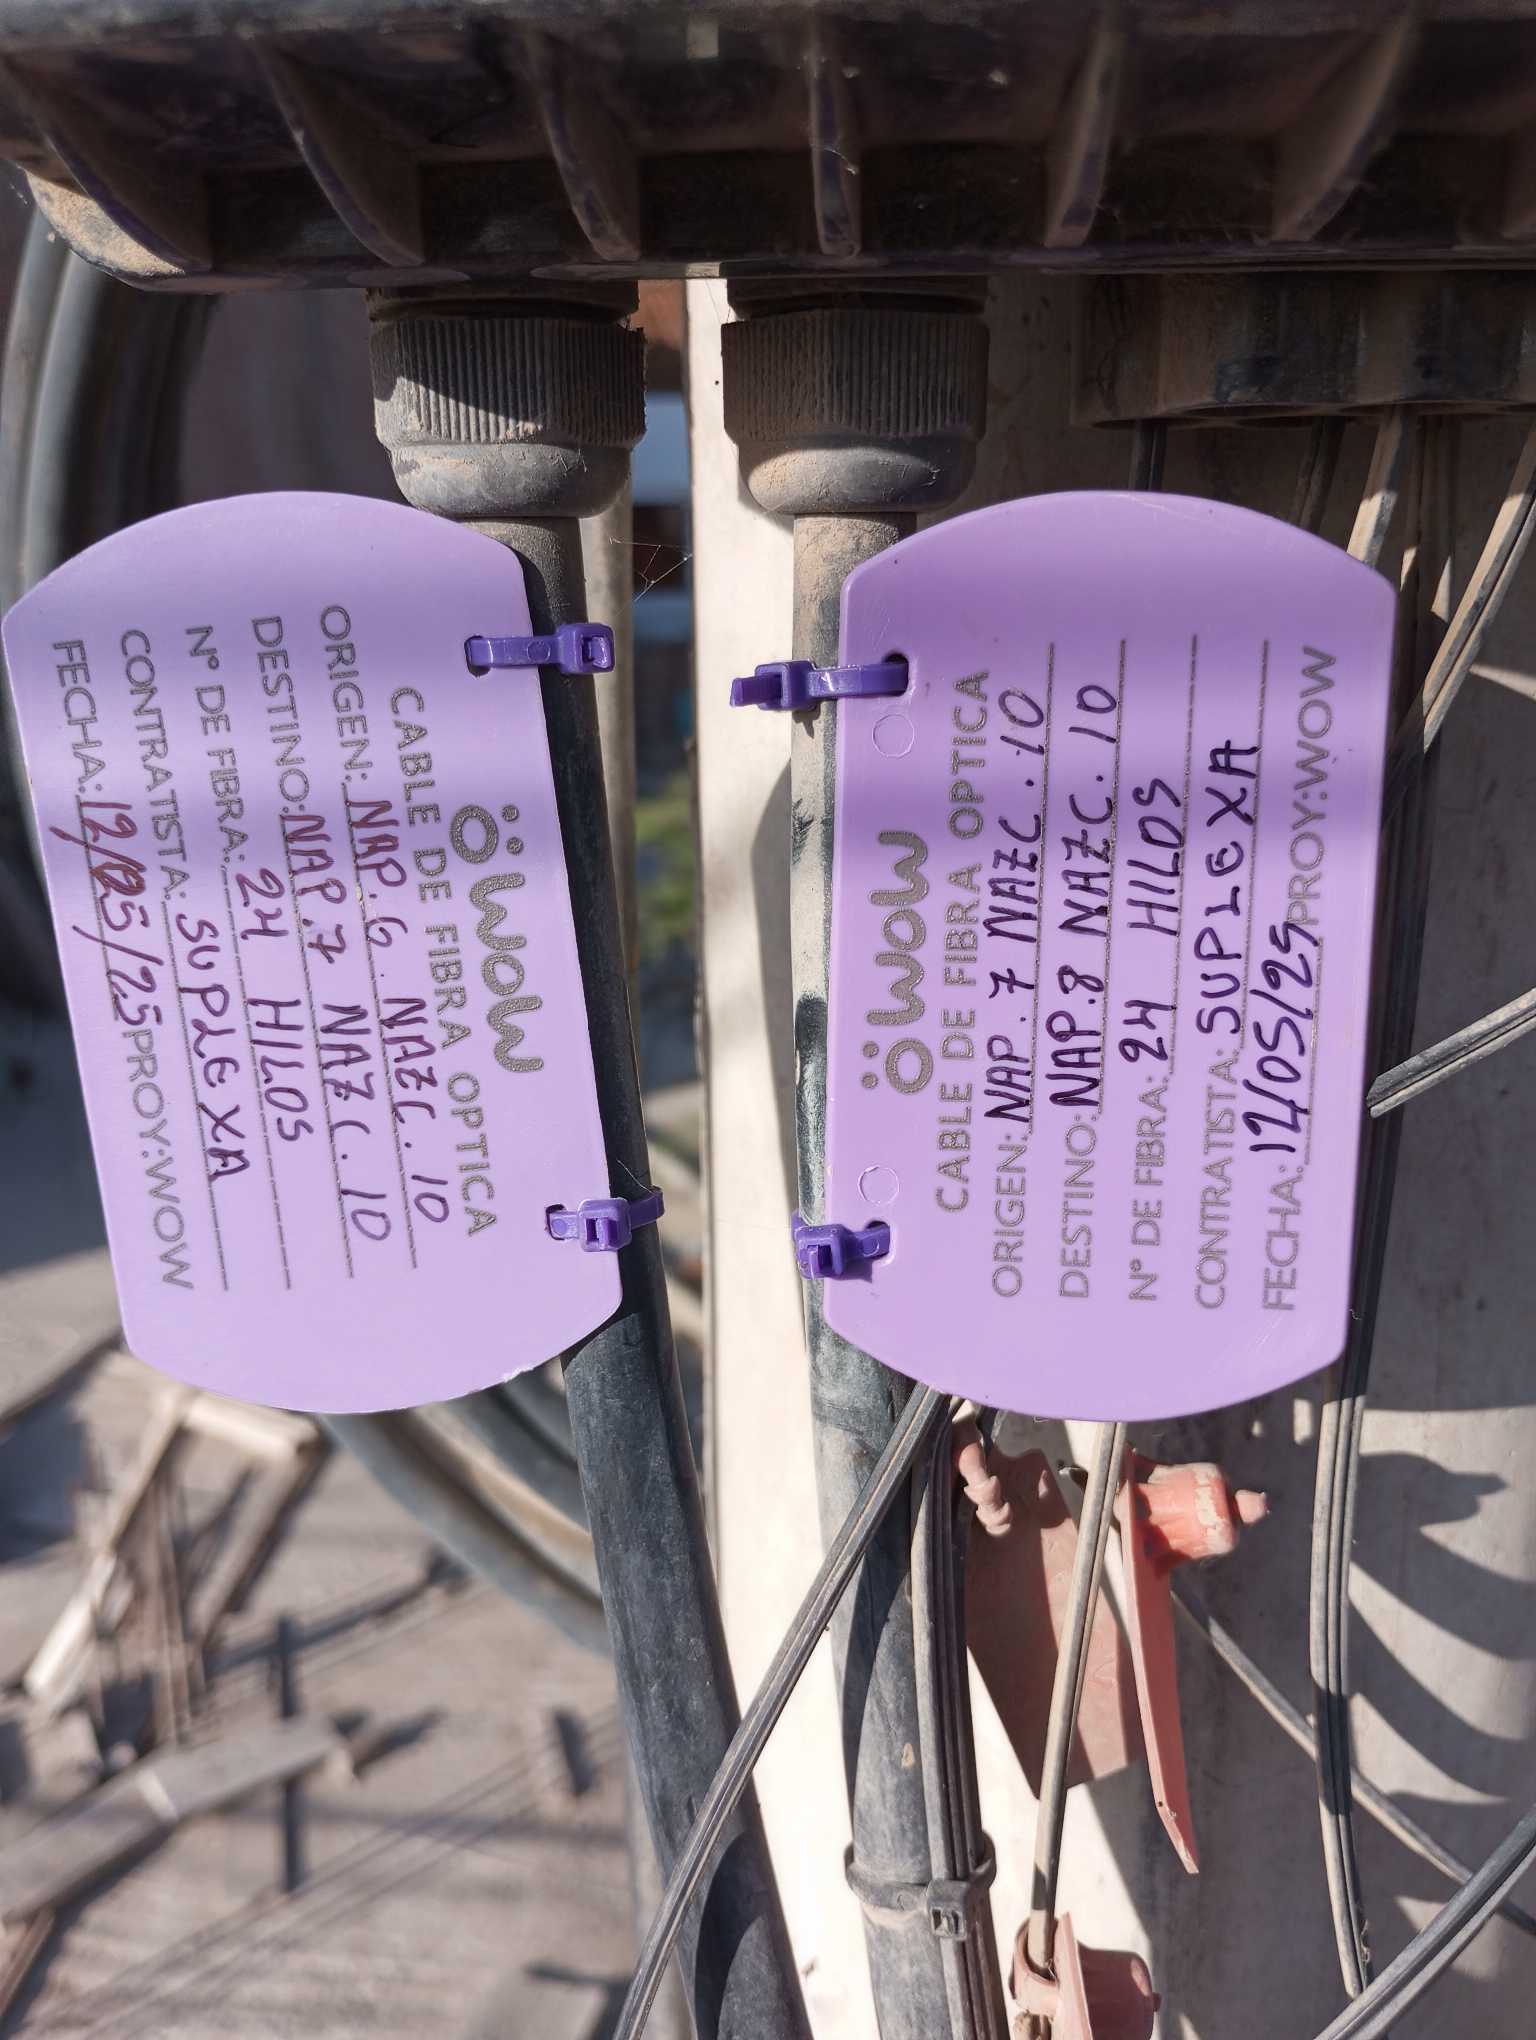 WOW
CABLE DE FIBRA OPTICA
ORIGEN: NAP. 6 NAZC. 10
DESTINO: NAP. 7 NAZC. 10
N° DE FIBRA: 24 HILOS
CONTRATISTA: SUPLEXA
FECHA: 12/05/25 PROY: WOW
WOW
CABLE DE FIBRA OPTICA
ORIGEN: NAP. 7 NAZC. 10
DESTINO: NAP. 8 NAZC. 10
N° DE FIBRA: 24 HILOS
CONTRATISTA: SUPLEXA
FECHA: 12/05/25 PROY: WOW